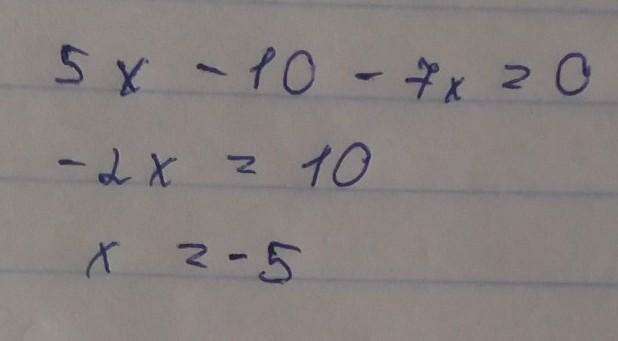 5x - 10 - 7x = 0
-2x = 10
x = -5